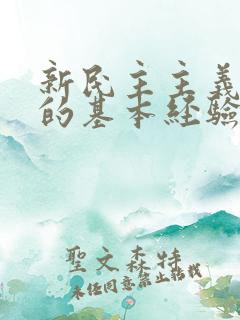 新民主主义
的基本经验
聖文森特
未经同意禁止转载